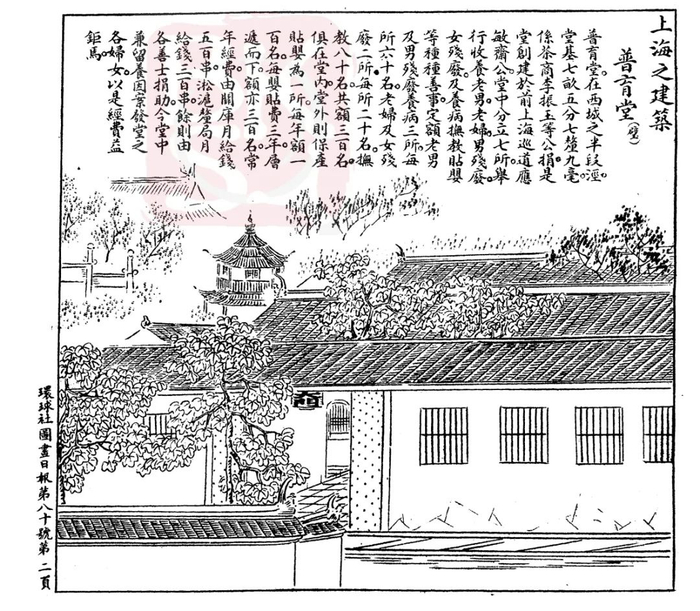 上海之建築
普育堂(壁)
普育堂。在西城之半段涇。
堂基七畝五分七釐九毫
係茶商李振玉等公捐。是
堂創建於前上海巡道應
敏齋。公堂中分立七所。舉
行收養老男。老婦。男殘廢。
女殘廢。及養病撫教貼嬰
等種種善事。定額老男
及男殘廢。養病三所。每
所六十名。老婦及女殘
廢二所。每所二十名。撫
教八十名。共額三百名。
俱在堂內。堂外則保產
貼嬰為一所。每年額一
百名。每嬰貼費三年。層
遞而下。額亦三百名。常
年經費。由關庫月給錢
五百串。淞滬釐局月
給錢三百串。餘則由
各善士捐助。今堂中
兼留養因案發堂之
各婦女。以是經費益
鉅焉。
環球社圖畫日報第八十號第二頁